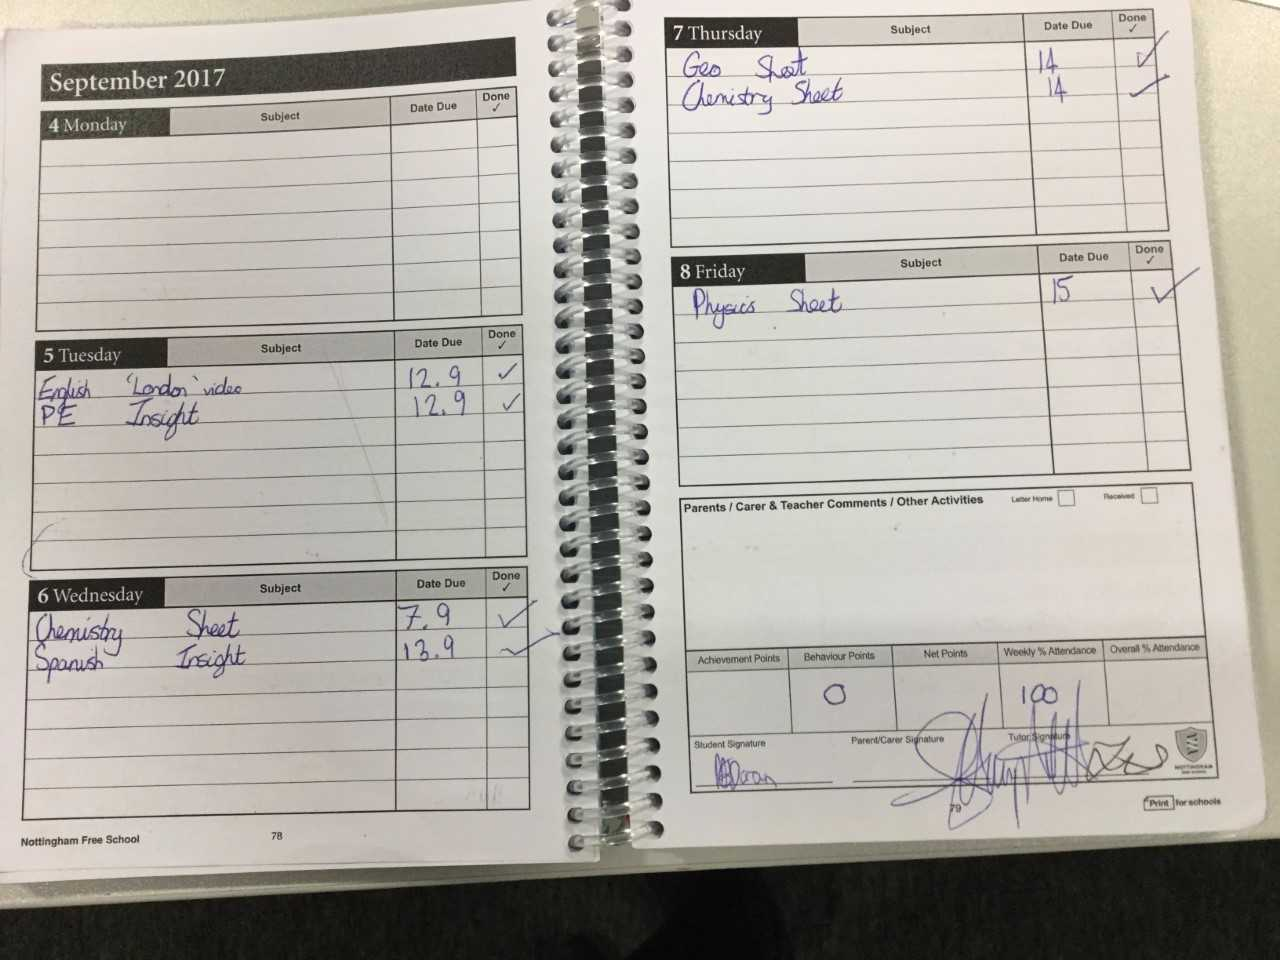 September 2017
4 Monday Subject Date Due Done ✓
5 Tuesday Subject Date Due Done ✓
English 'London' video 12.9 ✓
PE Insight 12.9 ✓
6 Wednesday Subject Date Due Done ✓
Chemistry Sheet 7.9 ✓
Spanish Insight 13.9 ✓
Nottingham Free School 78
7 Thursday Subject Date Due Done ✓
Geo Sheet 14 ✓
Chemistry Sheet 14 ✓
8 Friday Subject Date Due Done ✓
Physics Sheet 15 ✓
Parents / Carer & Teacher Comments / Other Activities Letter Home Received
Achievement Points Behaviour Points Net Points Weekly % Attendance Overall % Attendance
0 100
Student Signature Parent/Carer Signature Tutor Signature
NOTTINGHAM
79
Print for schools